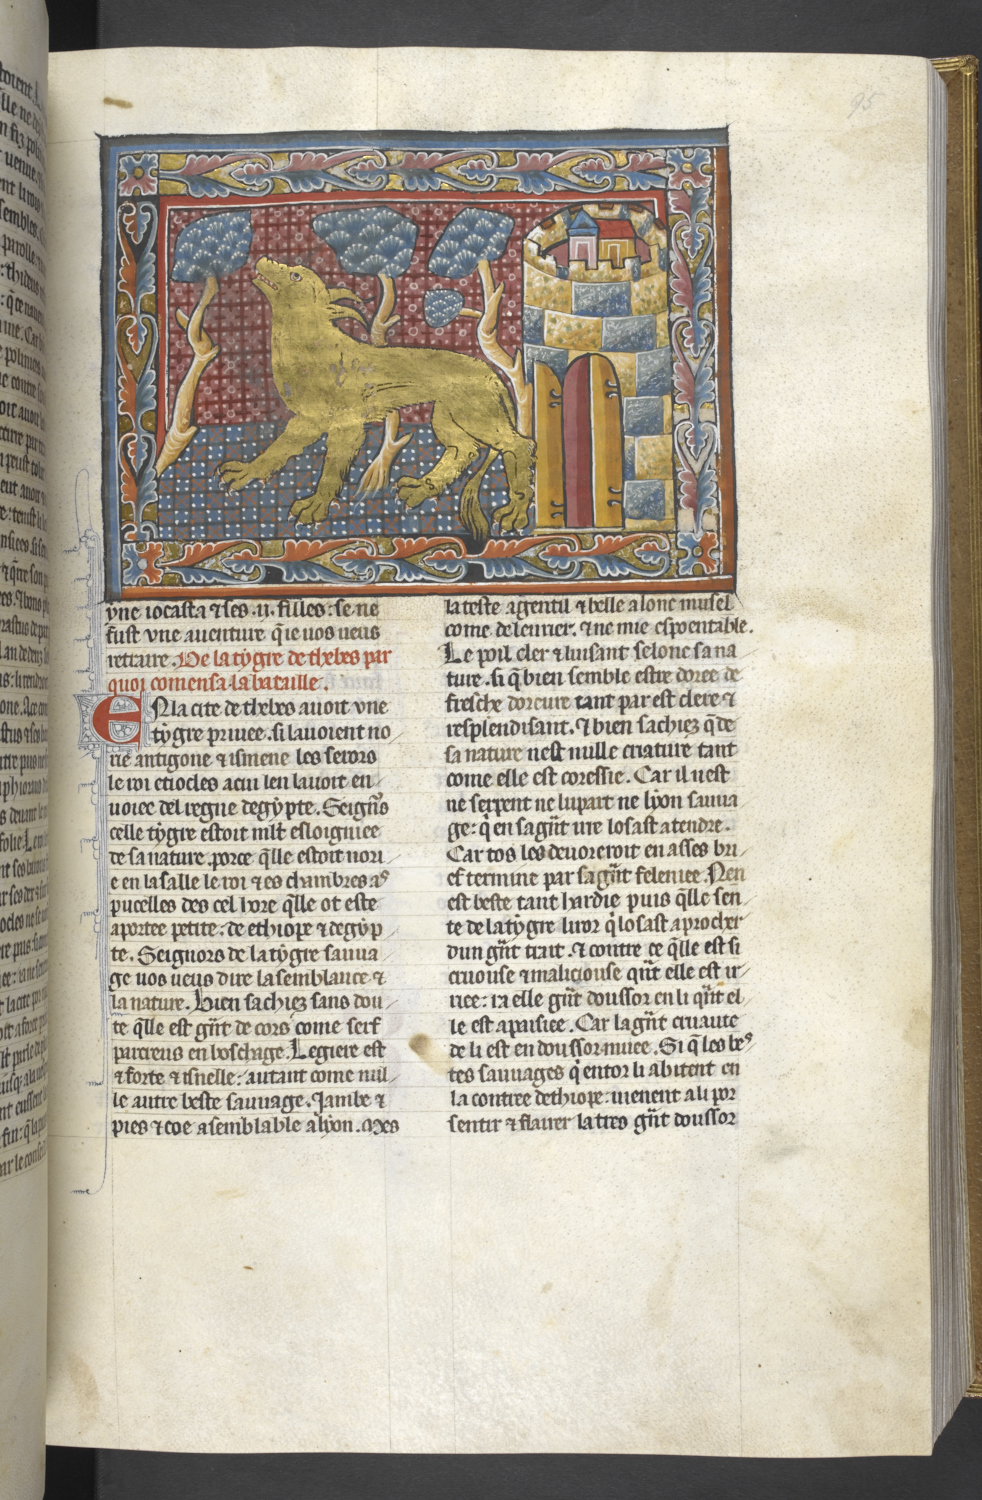 95
vne iocasta ⁊ ses .ii. filles: se ne
fust vne auenture q̄ ie uos ueus
retraire. De la tygre de thebes par
quoi comensa la bataille.
EN la cite de thebes auoit vne
tygre priuee. si lauoient no
rie antigone ⁊ ismene les serors
le roi etiocles a cui len lauoit en
uoiee del regne degypte. Seignr̄s
celle tygre estoit ml̄t esloigniee
de sa nature por ce q̄lle estoit nori
e en la salle le roi ⁊ es chambres as
pucelles des cel hore q̄lle ot este
aportee petite: de ethiope ⁊ degyp
te. Seignors de la tygre sauua
ge uos ueus dire la semblance ⁊
la nature. Bien sachiez sans dou
te q̄lle est gñt de cors come serf
parcreus en boschage. Legiere est
⁊ forte ⁊ isnelle: autant come nul
le autre beste sauuage. Jambe ⁊
pies ⁊ coe a semblable a lyon. Mes
la teste a gentil ⁊ belle a lonc musel
come de leurier. ⁊ ne mie espoentable.
Le poil cler ⁊ luisant selonc sa na
ture. si q̄ bien semble estre doree de
fresche doreure tant par est clere ⁊
resplendisant. ⁊ bien sachiez q̄ de
sa nature nest nulle criature tant
come elle est coressie. Car il nest
ne serpent ne lupart ne lyon sauua
ge: q̄ en sa gñt ire losast atendre.
Car tos les deuoreroit en asses bri
ef termine par sa gñt feleniee. Nen
est beste tant hardie puis q̄lle sen
te de la tygre liror q̄ losast aprocher
dun gñt trait. ⁊ contre ce q̄lle est si
cruouse ⁊ maliciouse qñt elle est ir
iee: ra elle gñt doussor en li qñt el
le est apaisiee. Car la gñt cruaute
de li est en doussor muee. Si q̄ les bes
tes sauuages q̄ entor li abitent en
la contree dethiope: uienent a li por
sentir ⁊ flairer la tres gñt doussor